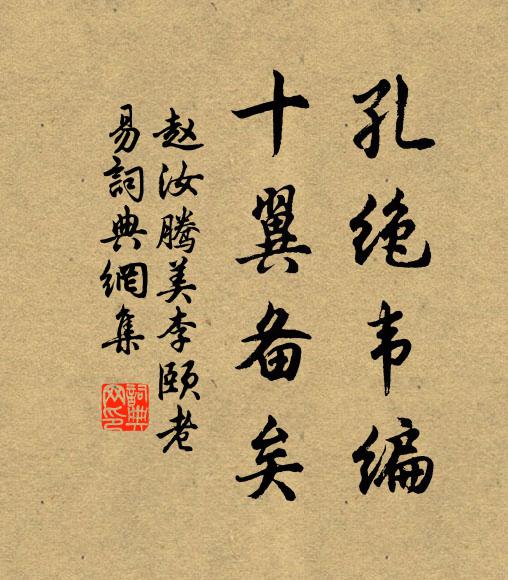 孔绝韦编
十翼备矣
赵汝腾美李颐老
易詞典網集
詞典
网印